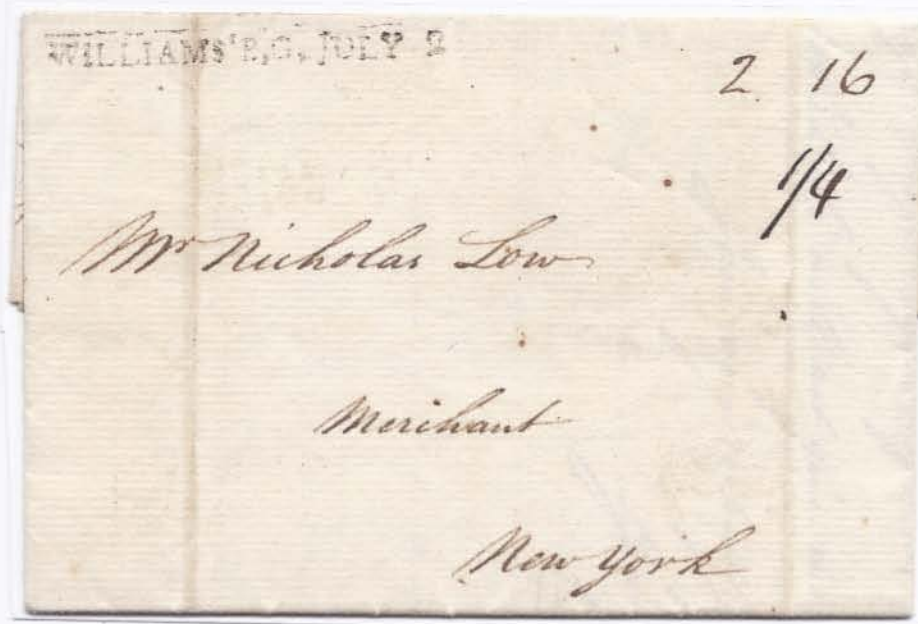 WILLIAMS'B,G, JULY 2
2 16
1/4
Mr Nicholas Low
Merchant
New York